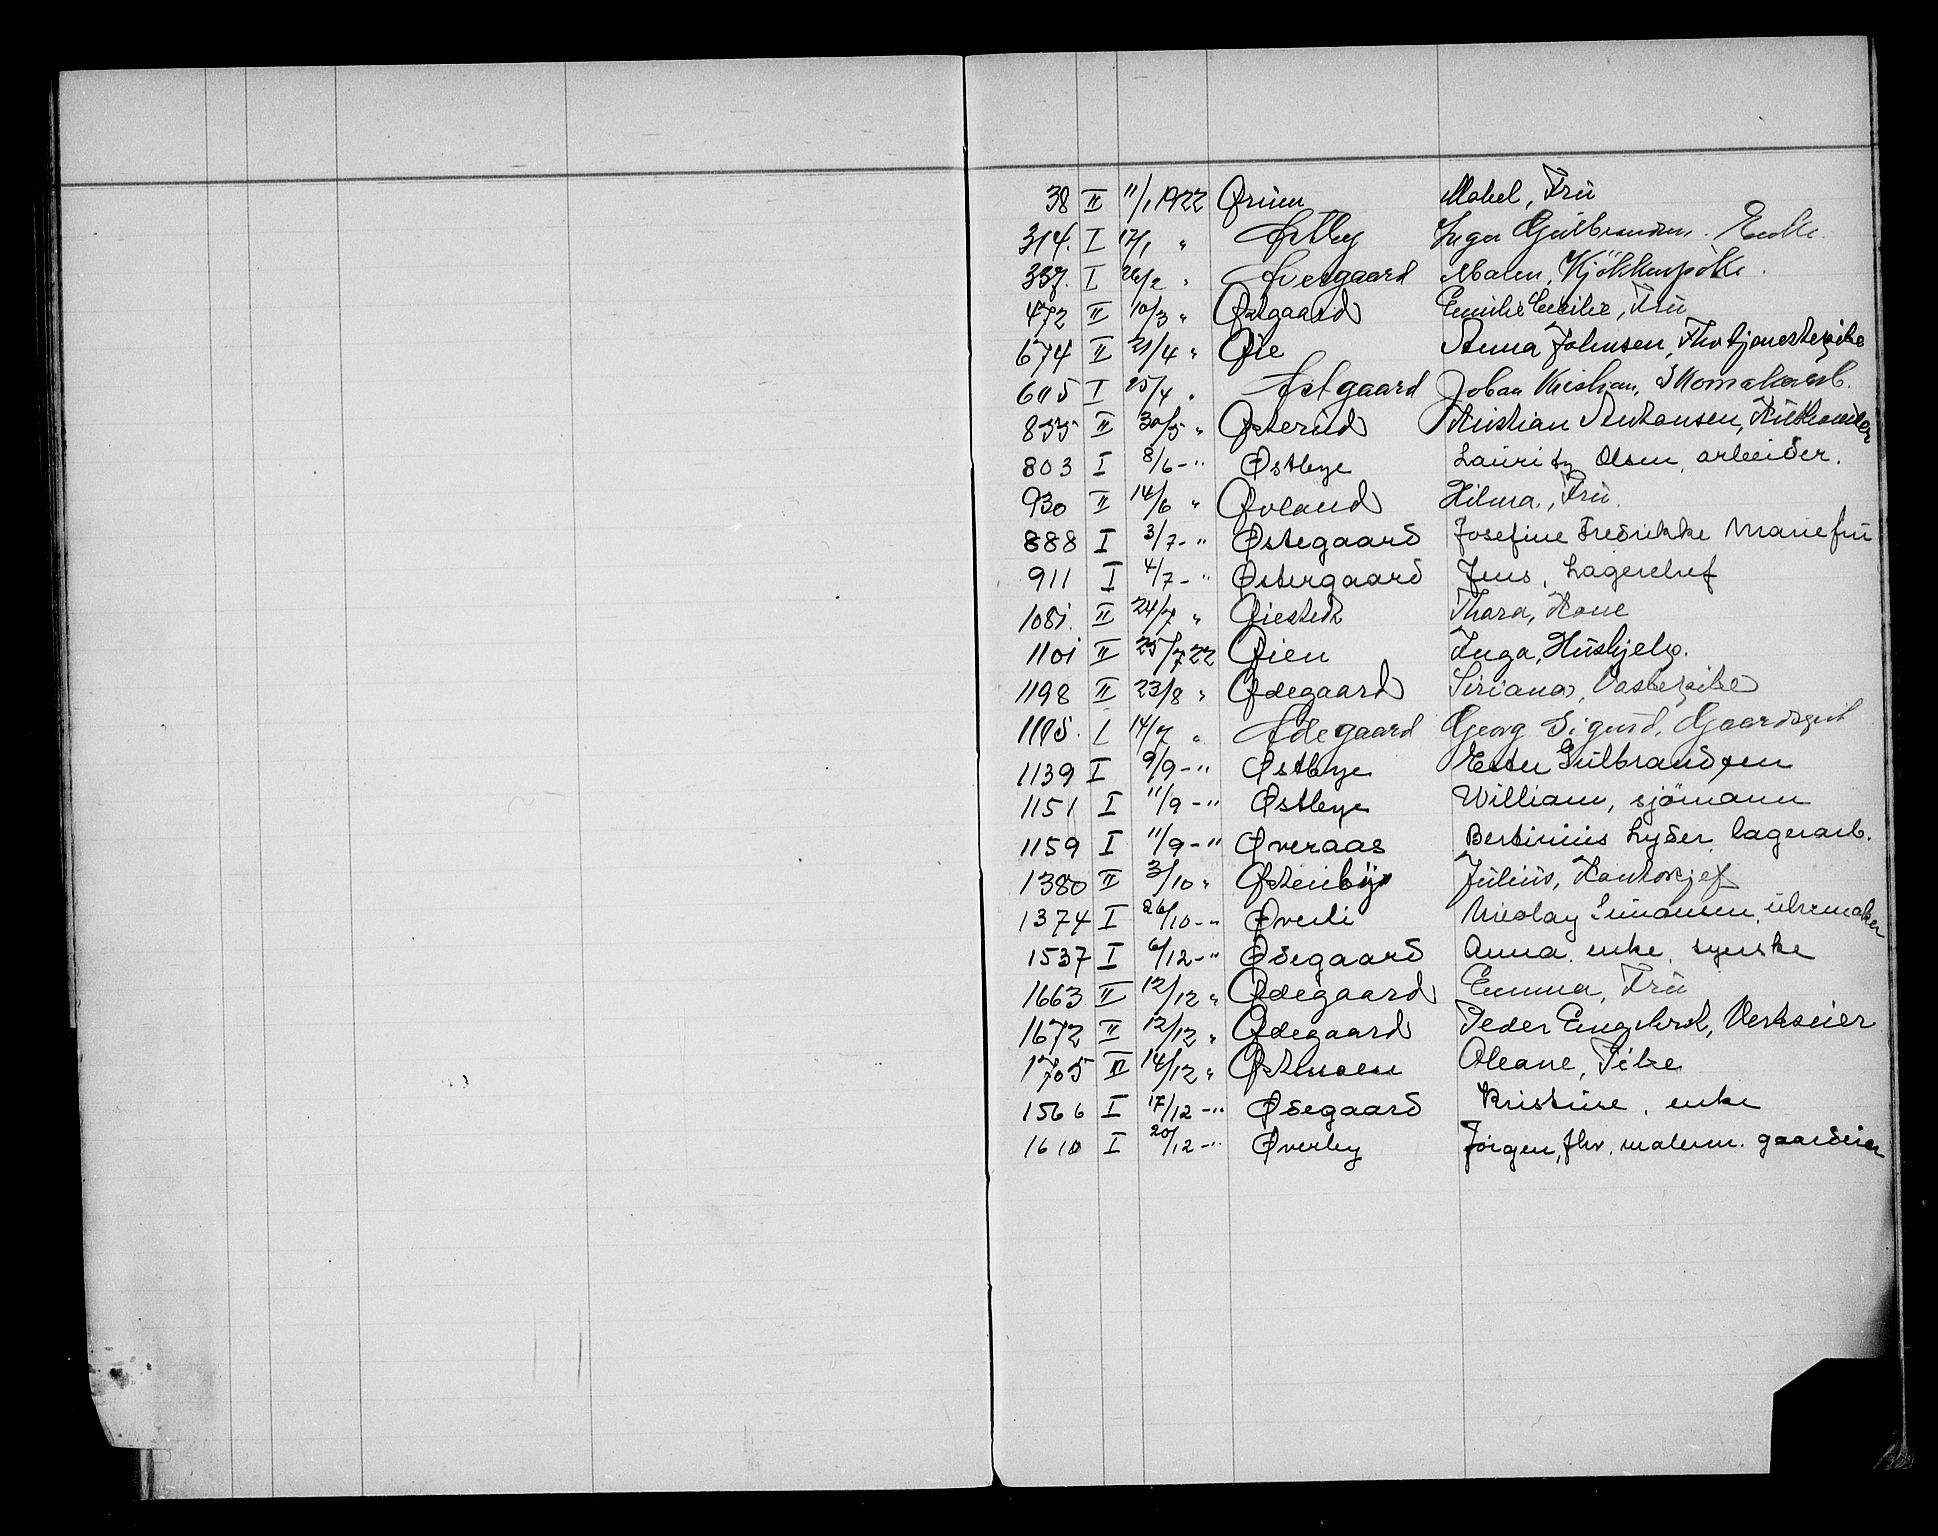 38 II 11/1 1922 Ørum Mabel, Frü
314. I 17/1 " Østby Inger Gulbrandsen. Enke.
337. I 26/2 " Øvergaard Malen, Kjökkenpike.
472 II 10/3 " Østgaard Emilie Cecilie, Frü
674 II 21/4 " Øie Anna Johnsen, Fhv tjenestepike
605 I 25/4 " Østgaard Johan Kristian, Skomakerarb.
835 II 30/5 " Østerud Kristian Antonsen,
803 I 8/6-" Østbye Lauritz Olsen, arbeider.
930 II 14/6 " Øvland Hilma, Frü.
888 I 3/7-" Østegaard Josefine Fredrikke Marie frü
911 I 4/7-" Østergaard Jens, Lagerchef
1081. II 24/7 " Øiestedt Thora, Kone
1101 II 25/7 22 Øien Inga, Hüshjelp.
1198 II 23/8 " Ødegaard Siriana, Vaskepike
1105. I 14/7 " Ødegaard Georg Sigurd, Gaardsgut
1139 I 9/9-" Østbye Ester Gülbrandsen
1151 I 11/9-" Østbye William, sjömann
1159 I 11/9-" Øveraas Bertinius Lyder, lagerarb.
1380 II 3/10 " Østenby Jülius, Kontorsjef
1374 I 26/10-" Øverli Nicolay Simonsen, ürmaker
1537 I 6/12-" Ødegaard Anna. enke, syerske
1663 II 12/12 " Ødegaard Emma, Frü
1672 II 12/12 " Ødegaard Peder Engebret, Verkseier
1705 II 14/12 " Østmoen Oleane, Pike
1566 I 17/12-" Ødegaard Kristine, enke
1610 I 20/12-" Øverby Jörgen, fhv. malerm. gaardeier